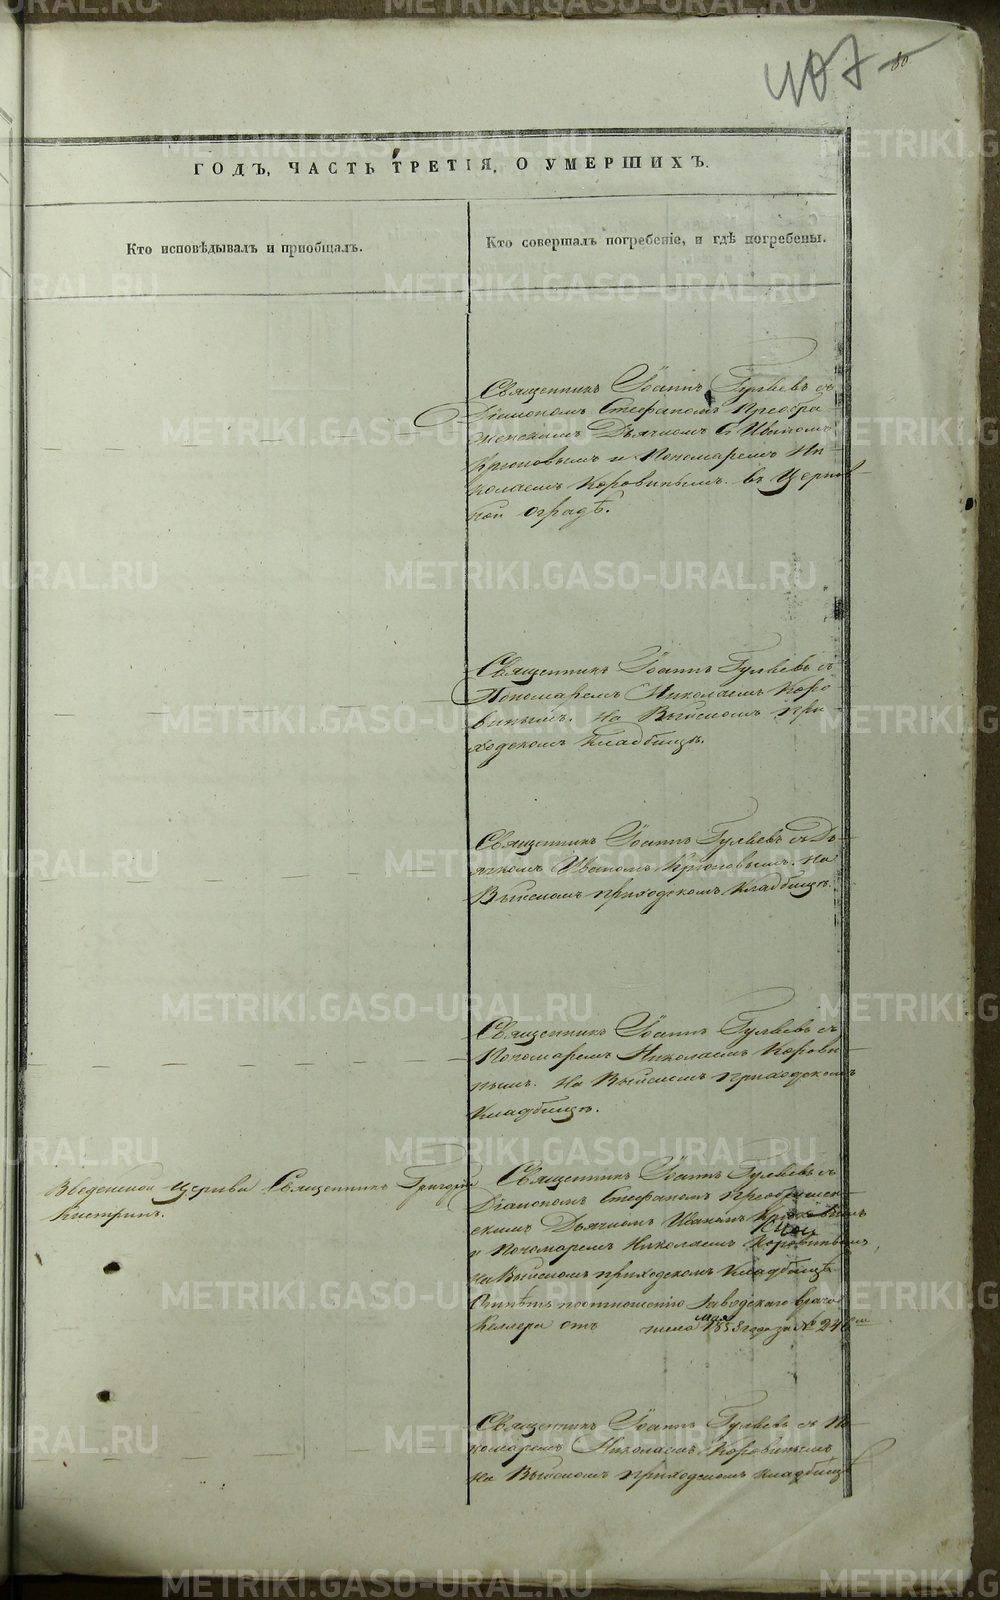 407
80
ГОДЪ, ЧАСТЬ ТРЕТІЯ, О УМЕРШИХЪ.
Кто исповѣдывалъ и пріобщалъ.
Кто совершалъ погребеніе, и гдѣ погребены.
Священникъ Іоаннъ Гуляевъ съ
Діакономъ Стефаномъ Преобра-
женскимъ Дьячкомъ Иваномъ
Крюковымъ и Пономаремъ Ни-
колаемъ Коровинымъ. въ Церков-
ной оградѣ.
Священникъ Іоаннъ Гуляевъ съ
Пономаремъ Николаемъ Коро-
винымъ. На Выйскомъ при-
ходскомъ кладбищѣ.
Священникъ Іоаннъ Гуляевъ съ Дь-
ячкомъ Иваномъ Крюковымъ. На
Выйскомъ приходскомъ кладбищѣ.
Священникъ Іоаннъ Гуляевъ съ
Пономаремъ Николаемъ Корови-
нымъ. На Выйскомъ приходскомъ
кладбищѣ.
Введенской Церкви Священникъ Григорій
Кастринъ.
Священникъ Іоаннъ Гуляевъ съ
Діакономъ Стефаномъ Преображен-
скимъ Дьячкомъ Иваномъ Крюковымъ
и Пономаремъ Николаемъ Коровинымъ
на Выйскомъ приходскомъ кладбищѣ
Отпѣтъ по отношенію Заводскаго врача
Келлера отъ числа мая 1853 года за №
Священникъ Іоаннъ Гуляевъ съ По-
номаремъ Николаемъ Коровинымъ
на Выйскомъ приходскомъ кладбищѣ
METRIKI.GASO-URAL.RU